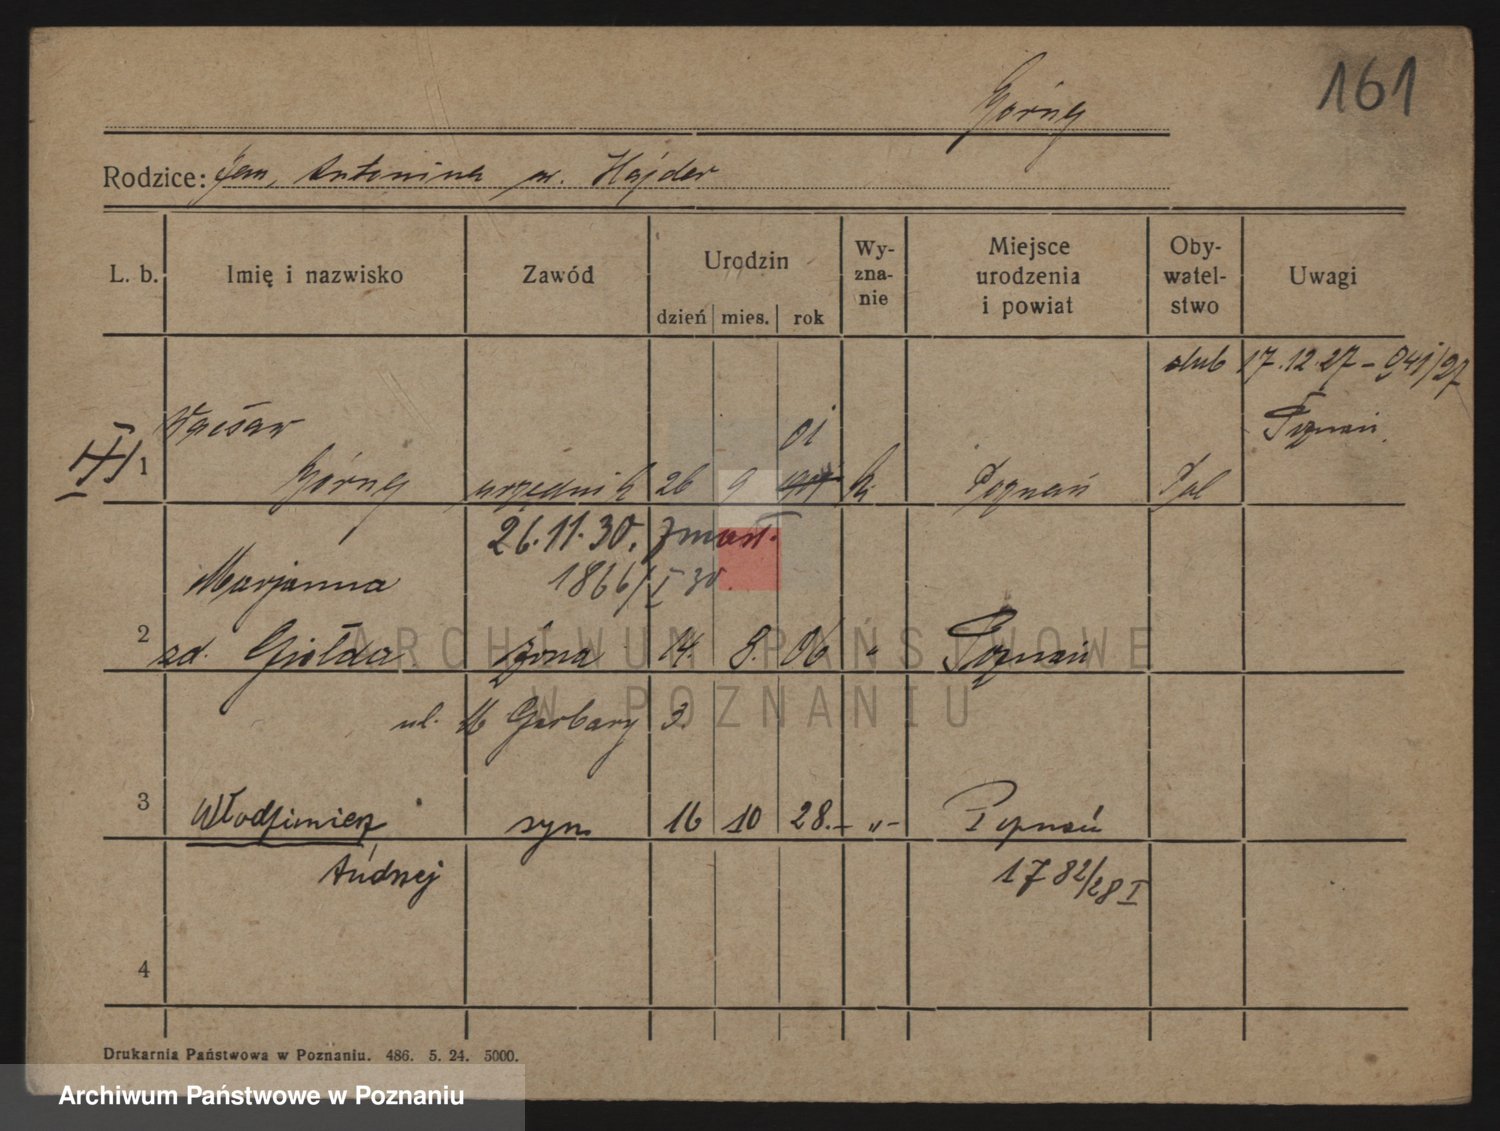 161
Górny
Rodzice: Jan, Antonina w. Hajder
L. b. Imię i nazwisko Zawód Urodzin dzień mies. rok Wy-zna-nie Miejsce urodzenia i powiat Oby-watel-stwo Uwagi
ślub 17.12.27 – 941/27
Poznań
Wacław 01
1 Górny urzędnik 26 9 Poznań Pol
26.11.30. zmarł.
1866/I 30.
Marjanna
2 zd. Giełda żona 14. 8. 06 " Poznań
ul. Garbary 3.
3 Włodzimierz syn 16 10 28. – " – Poznań
Andrzej 1782/28 I
4
Drukarnia Państwowa w Poznaniu. 486. 5. 24. 5000.
ARCHIWUM PAŃSTWOWE
W POZNANIU
Archiwum Państwowe w Poznaniu